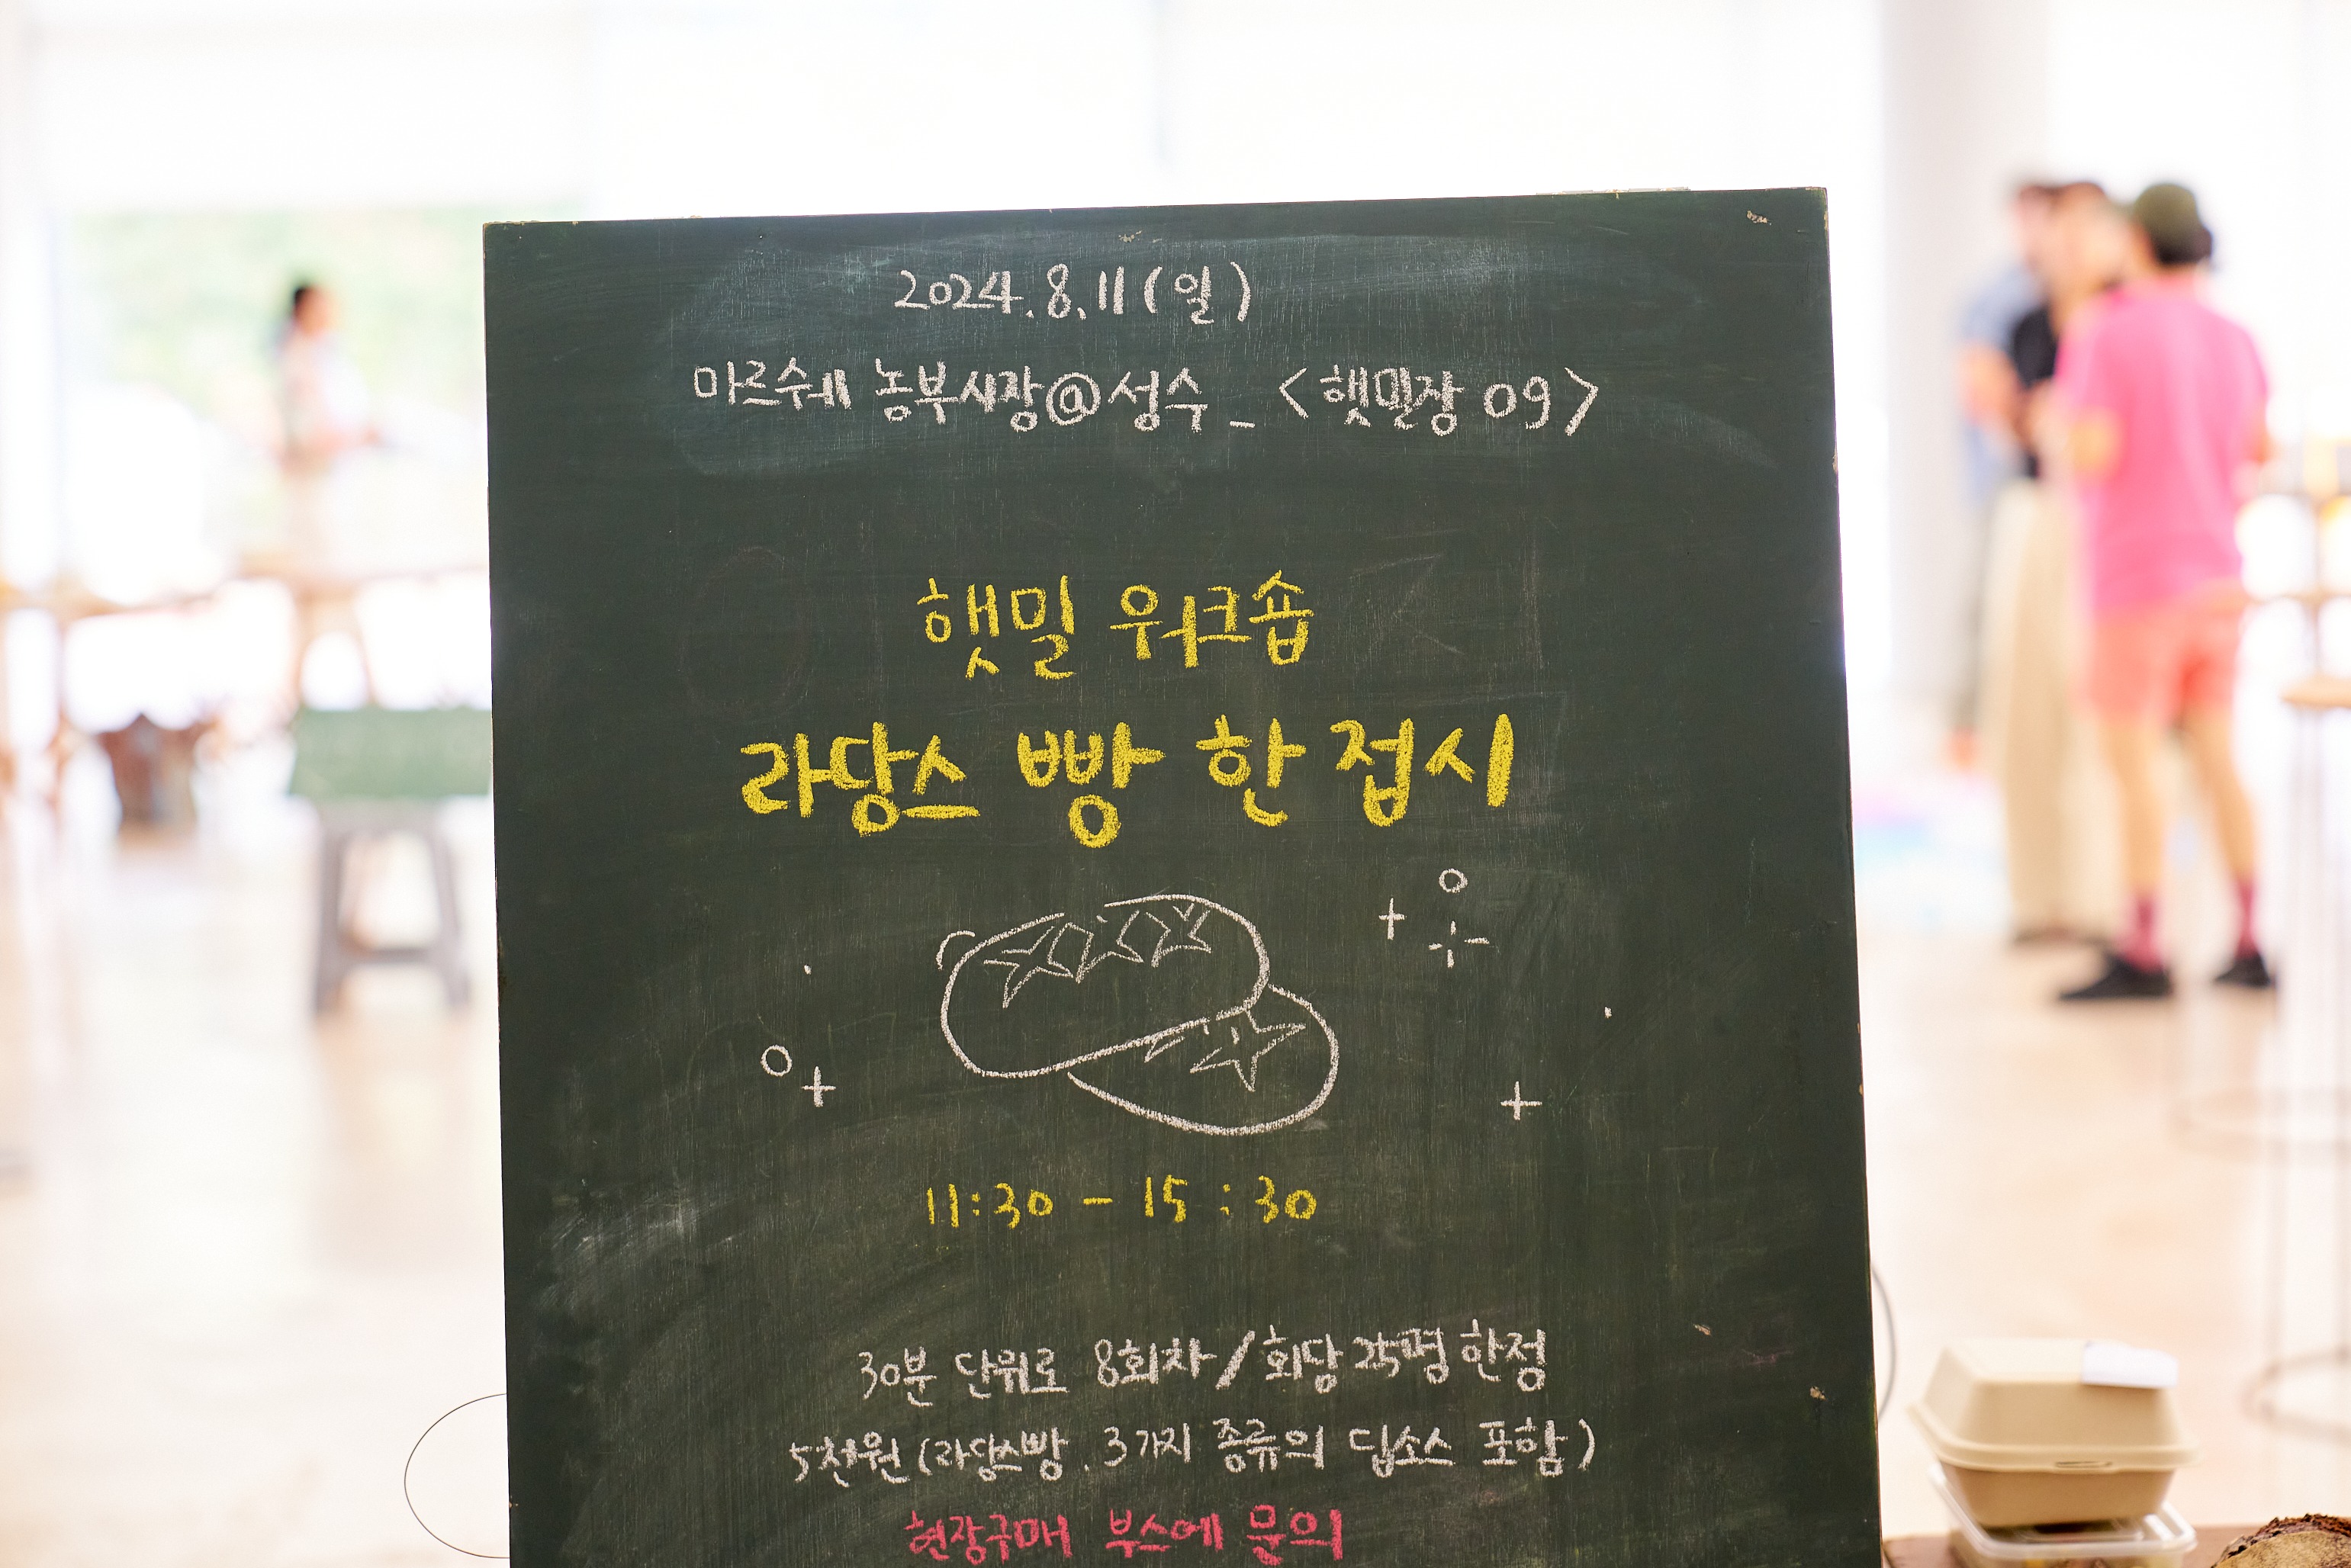 2024.8.11(일)
마르쉐 농부시장@성수_<햇밀장 09>
햇밀 워크숍
라당스 빵 한 접시
11:30 - 15:30
30분 단위로 8회차/회당 25명 한정
5천원(라당스빵, 3가지 종류의 딥소스 포함)
현장구매 부스에 문의